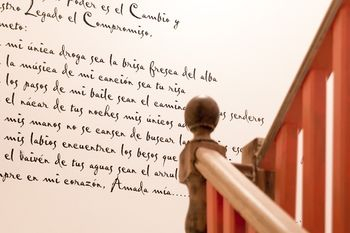 Poder es el Cambio y
stro Legado el Compromiso,
meto:
mi única droga sea la brisa fresca del alba
la música de mi canción sea tu risa
los pasos de mi baile sean el camin senderos
el nácar de tus noches mis únicos
mis manos no se cansen de buscar
mis labios encuentren los besos que
el vaivén de tus aguas sean el arrul
mpre en mi corazón, Amada mía....